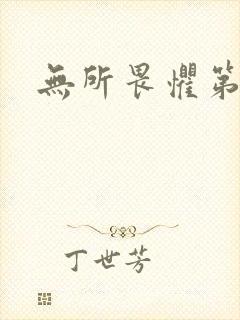 無所畏懼第
丁世芳